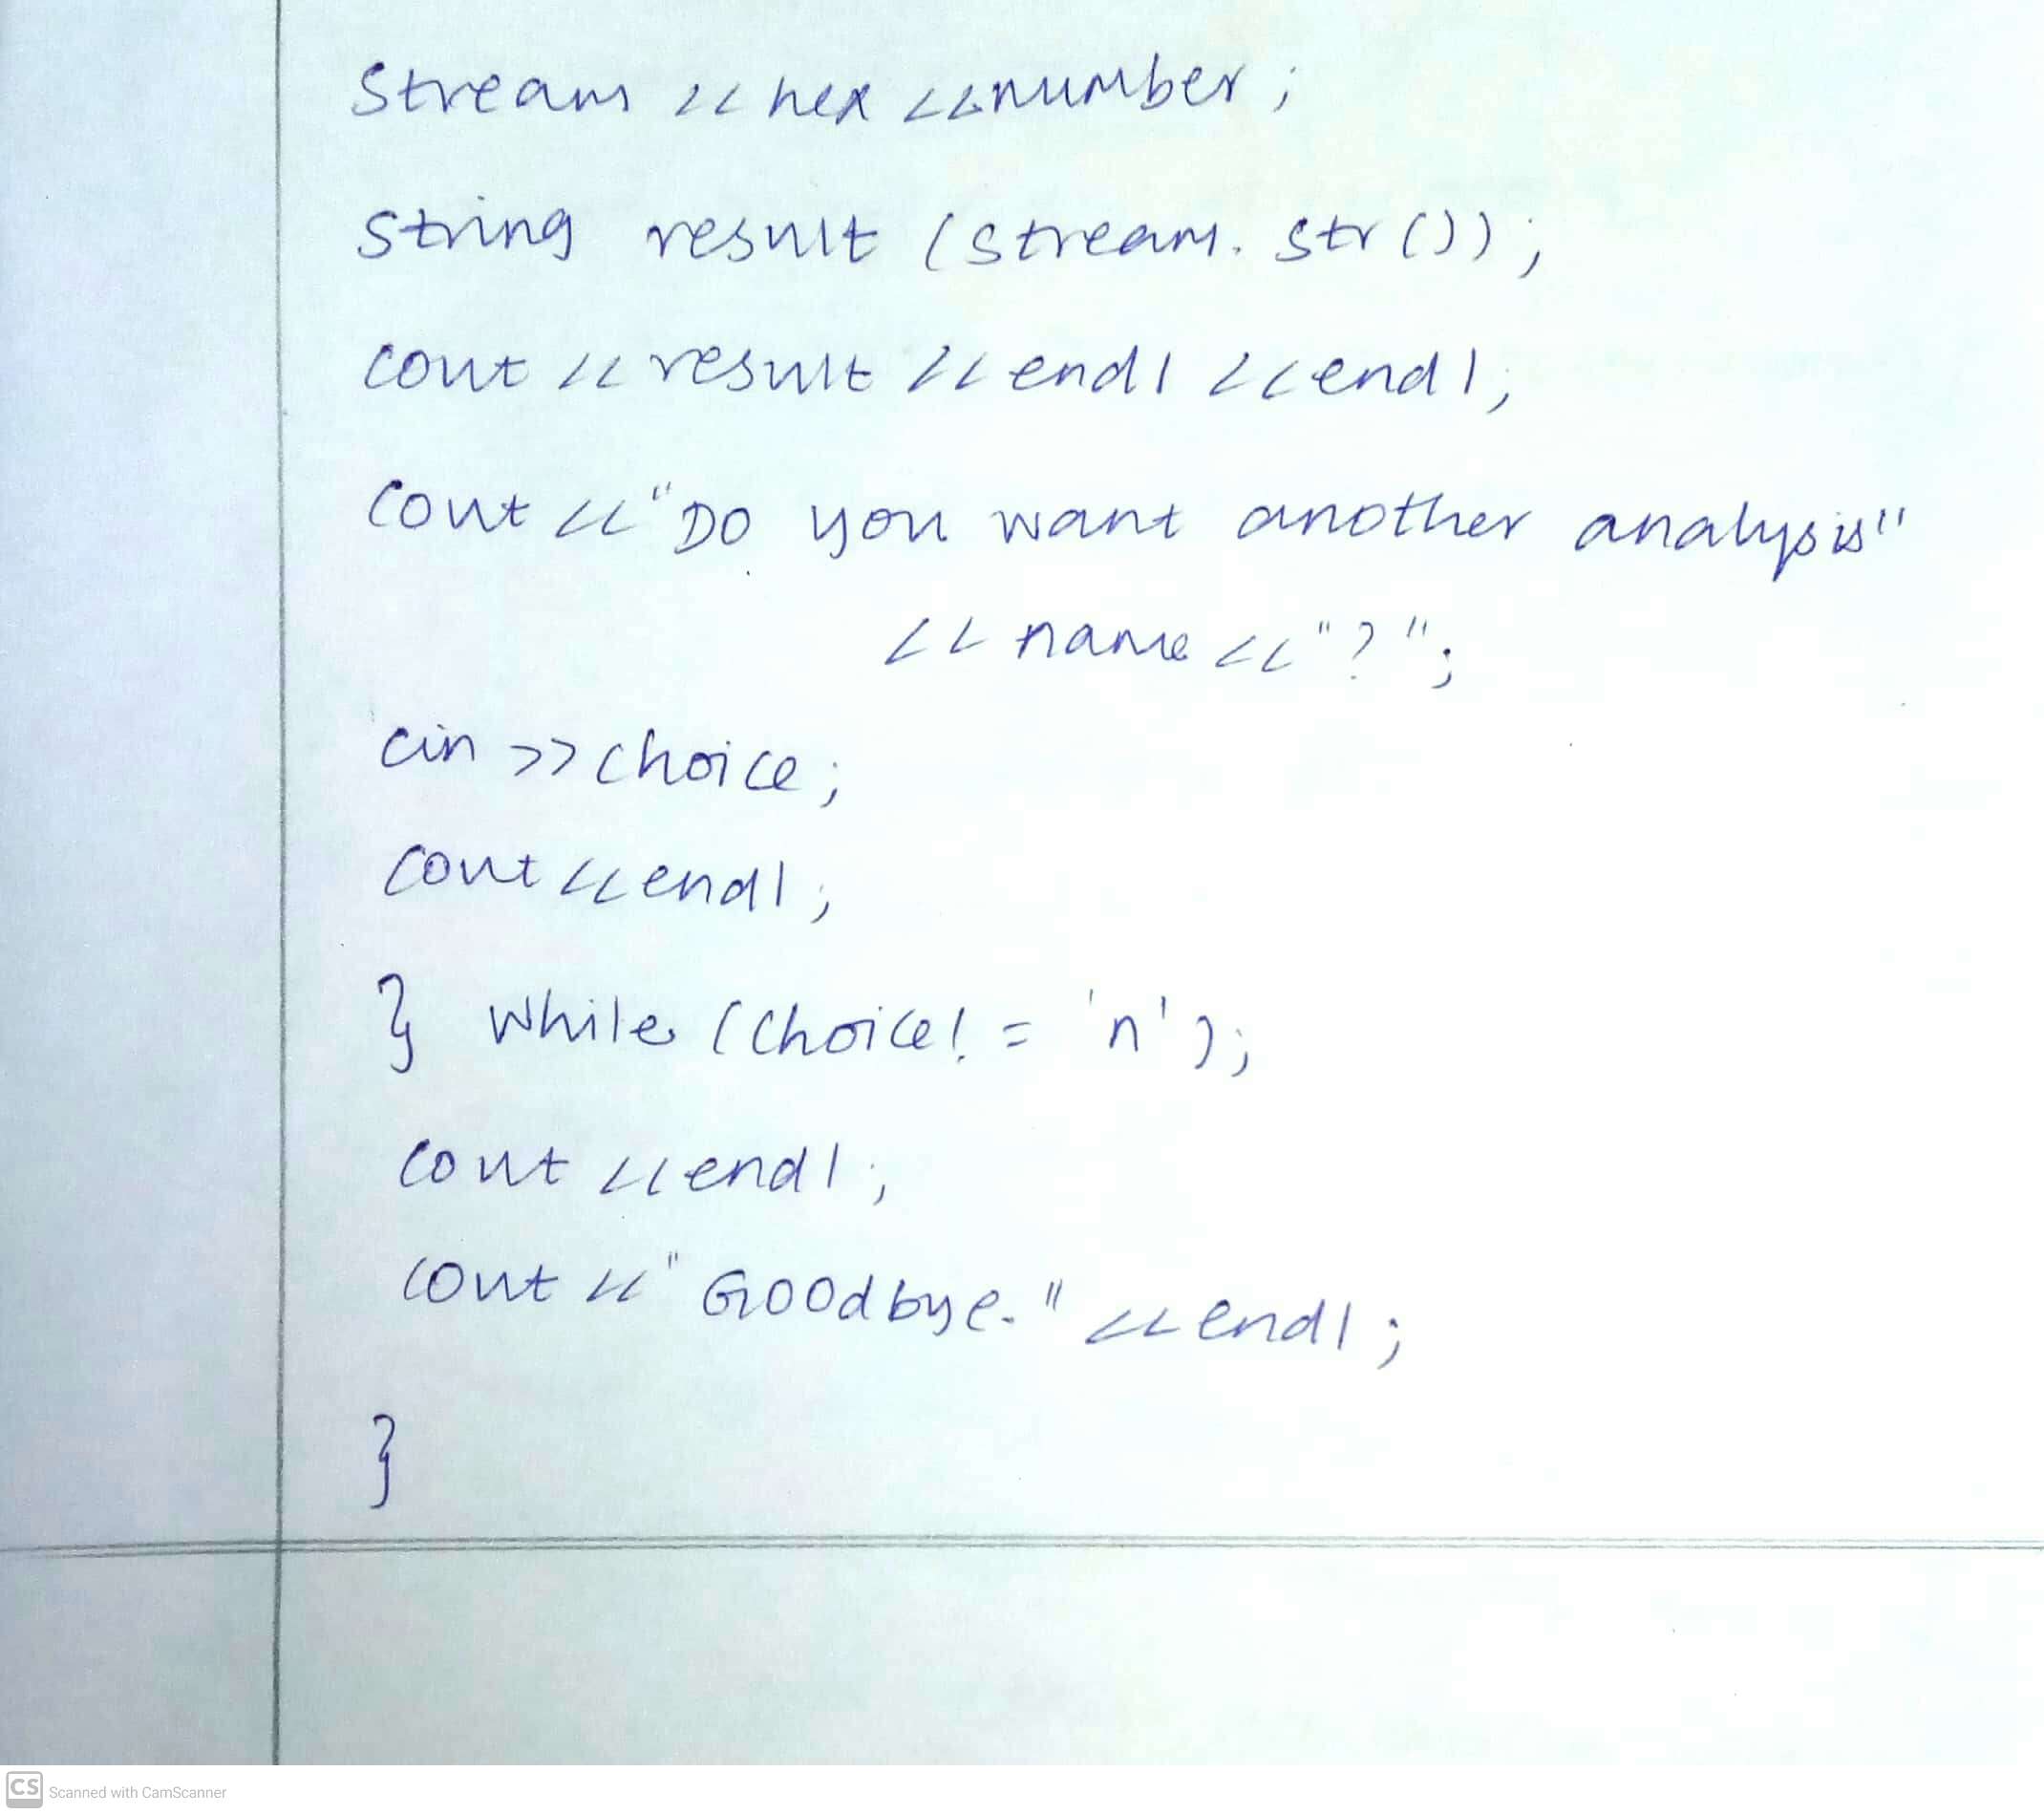 Stream << hex << number;
String result (stream. str ());
cout << result << endl << endl;
cout << "Do you want another analysis"
<< name << "?";
cin >> choice;
cout << endl;
} while (choice! = 'n');
cout << endl;
cout << "Goodbye." << endl;
}
CS Scanned with CamScanner